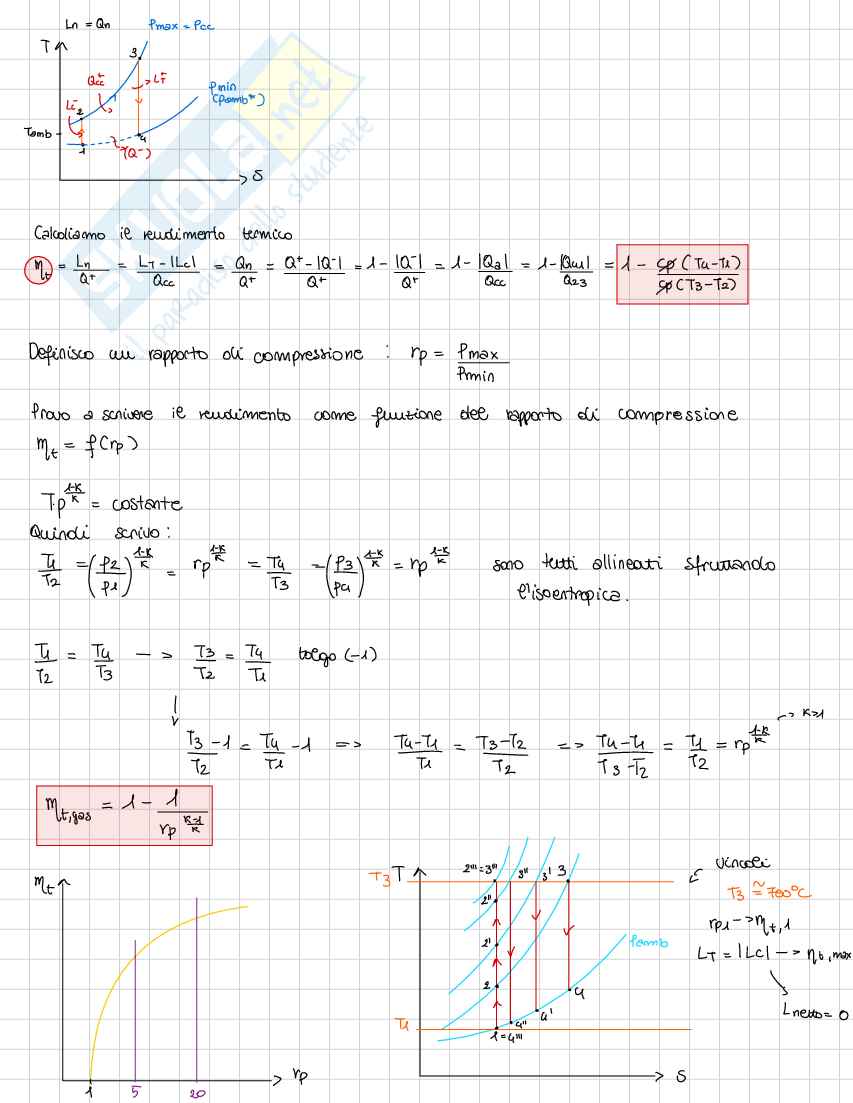 Ln = Qn
Pmax = Pcc
T
3
Qcc⁺
LT⁺
Pmin
(Pamb*)
Lc⁻
2
Tamb
1
4
(Q⁻)
S
SKUOLA.net
il paradiso dello studente
Calcoliamo il rendimento termico
ηt = Ln/Q⁺ = (LT - |Lc|)/Qcc = Qn/Q⁺ = (Q⁺ - |Q⁻|)/Q⁺ = 1 - |Q⁻|/Q⁺ = 1 - |Q2|/Qcc = 1 - |Q41|/Q23 = 1 - cp (T4 - T1)/cp (T3 - T2)
Definisco un rapporto di compressione : rp = Pmax/Pmin
Provo a scrivere il rendimento come funzione del rapporto di compressione
ηt = f(rp)
T·p^((1-K)/K) = costante
Quindi scrivo:
T1/T2 = (P2/P1)^((1-K)/K) = rp^((1-K)/K) = T4/T3 = (P3/P4)^((1-K)/K) = rp^((1-K)/K) sono tutti allineati sfruttando
l'isoentropica.
T1/T2 = T4/T3 —> T3/T2 = T4/T1 tolgo (-1)
T3/T2 - 1 = T4/T1 - 1 => (T4 - T1)/T1 = (T3 - T2)/T2 => (T4 - T1)/(T3 - T2) = T1/T2 = rp^((1-K)/K) --> K>1
ηt,gas = 1 - 1/rp^((K-1)/K)
ηt
rp
1
5
20
T3
T
2''' = 3'''
3''
3'
3
2''
2'
2
Pamb
4
4'
4''
T1
1 = 4'''
S
vincoli
T3 ≅ 700°C
rp1 —> ηt,1
LT = |Lc| —> ηt,max
Lnetto = 0